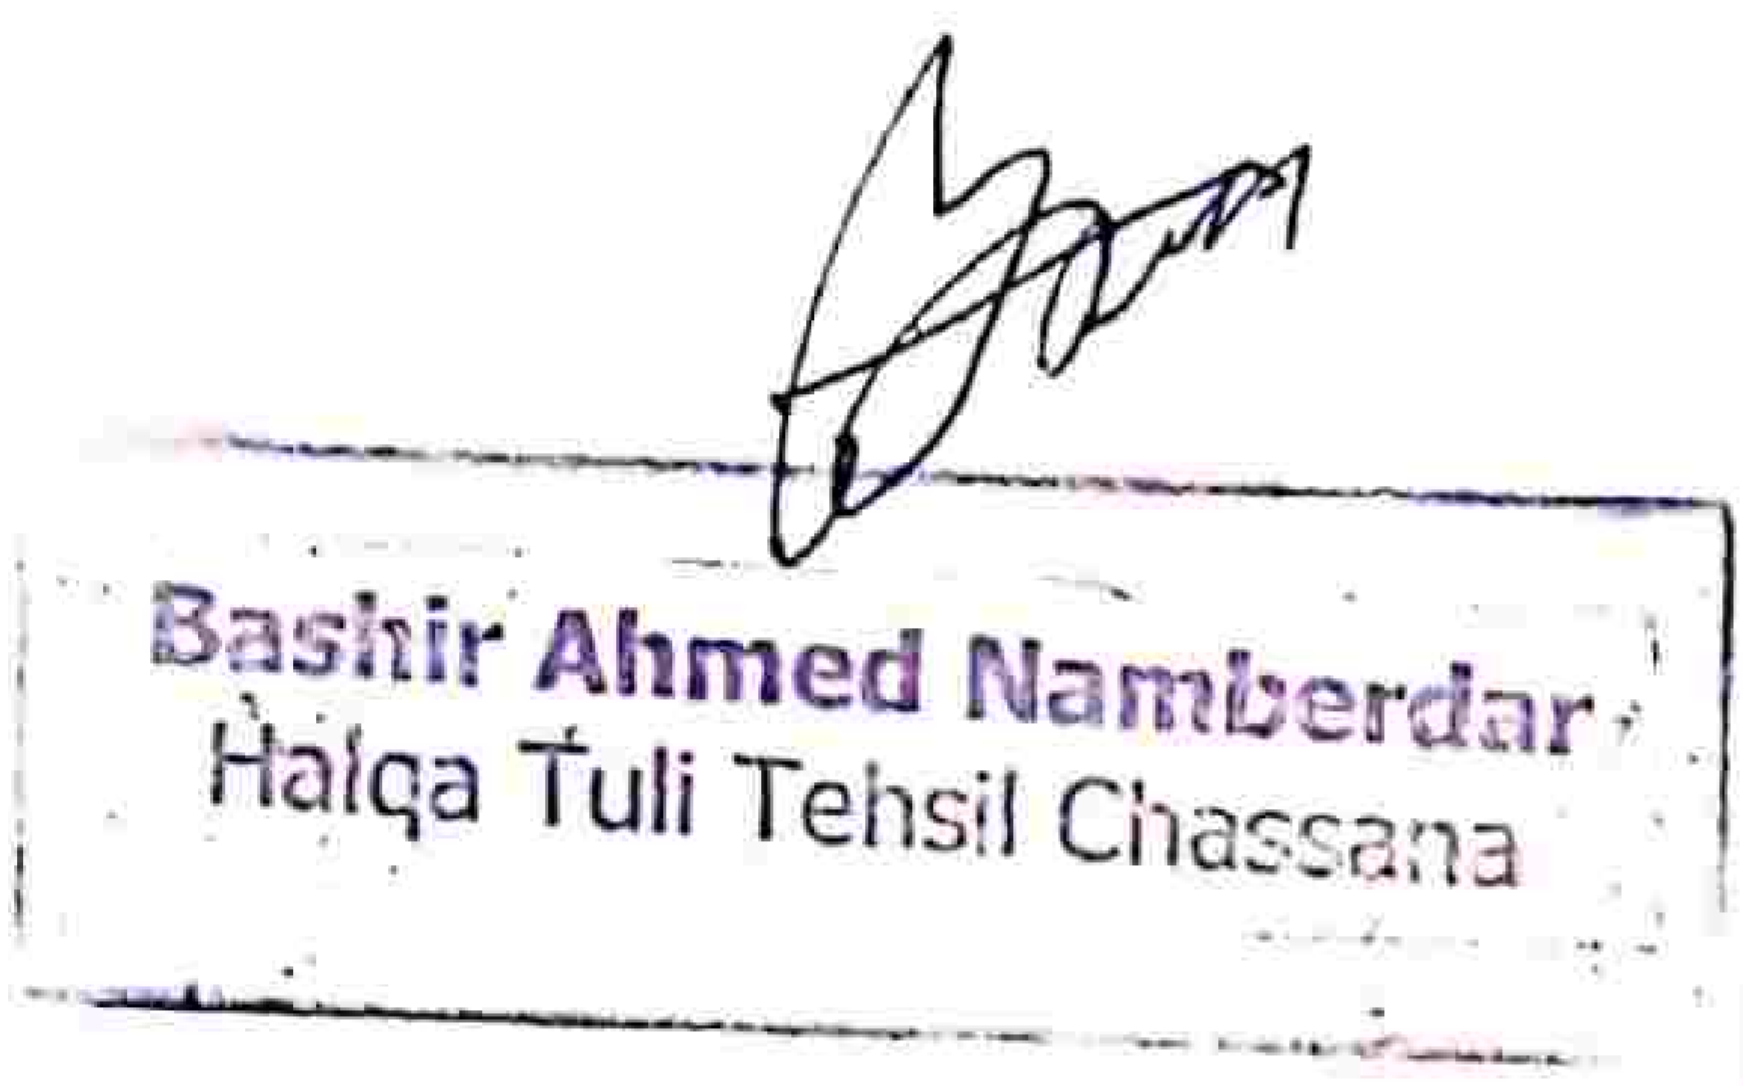 Bashir Ahmed Namberdar
Halqa Tuli Tehsil Chassana